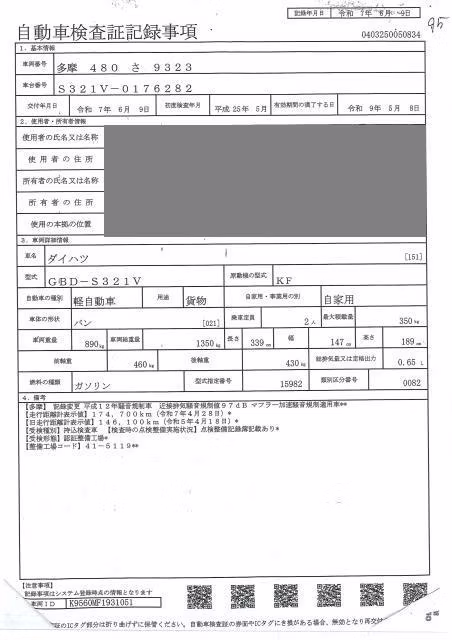 記録年月日 令和 7年 6月 9日
95
自動車検査証記録事項
0403250050834
1．基本情報
車両番号 多摩 480 さ 9323
車台番号 S321V－0176282
交付年月日 令和 7年 6月 9日 初度検査年月 平成25年 5月 有効期間の満了する日 令和 9年 5月 8日
2．使用者・所有者情報
使用者の氏名又は名称
使用者の住所
所有者の氏名又は名称
所有者の住所
使用の本拠の位置
3．車両詳細情報
車名 ダイハツ [151]
型式 GBD－S321V 原動機の型式 KF
自動車の種別 軽自動車 用途 貨物 自家用・事業用の別 自家用
車体の形状 バン [021] 乗車定員 2人 最大積載量 350kg
車両重量 890kg 車両総重量 1350kg 長さ 339cm 幅 147cm 高さ 189cm
前軸重 460kg 後軸重 430kg 総排気量又は定格出力 0.65 L
燃料の種類 ガソリン 型式指定番号 15982 類別区分番号 0082
4．備考
【多摩】 記録変更 平成12年騒音規制車 近接排気騒音規制値97dB マフラー加速騒音規制適用車**
【走行距離計表示値】174,700km（令和7年4月28日）*
【旧走行距離計表示値】146,100km（令和5年4月18日）*
【受検種別】持込検査車 【検査時の点検整備実施状況】点検整備記録簿記載あり*
【受検形態】認証整備工場*
【整備工場コード】41－5119**
【注意事項】
記録事項はシステム登録時点の情報となります
車両ID K9560MF1931051
証のICタグ部分は折り曲げずに保管ください。自動車検査証の券面やICタグにき損がある場合、無効となり再交付